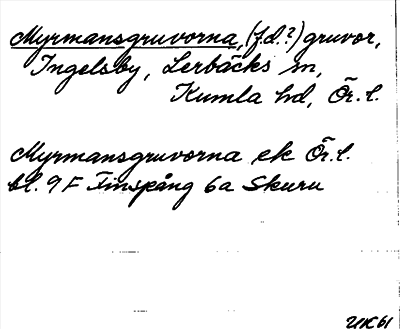 Myrmansgruvorna, (f.d.?) gruvor,
Ingelsby, Lerbäcks sn,
Kumla hd, Ör.l.
Myrmansgruvorna ek Ör.l.
bl. 9F Finspång 6a Skuru
UK61